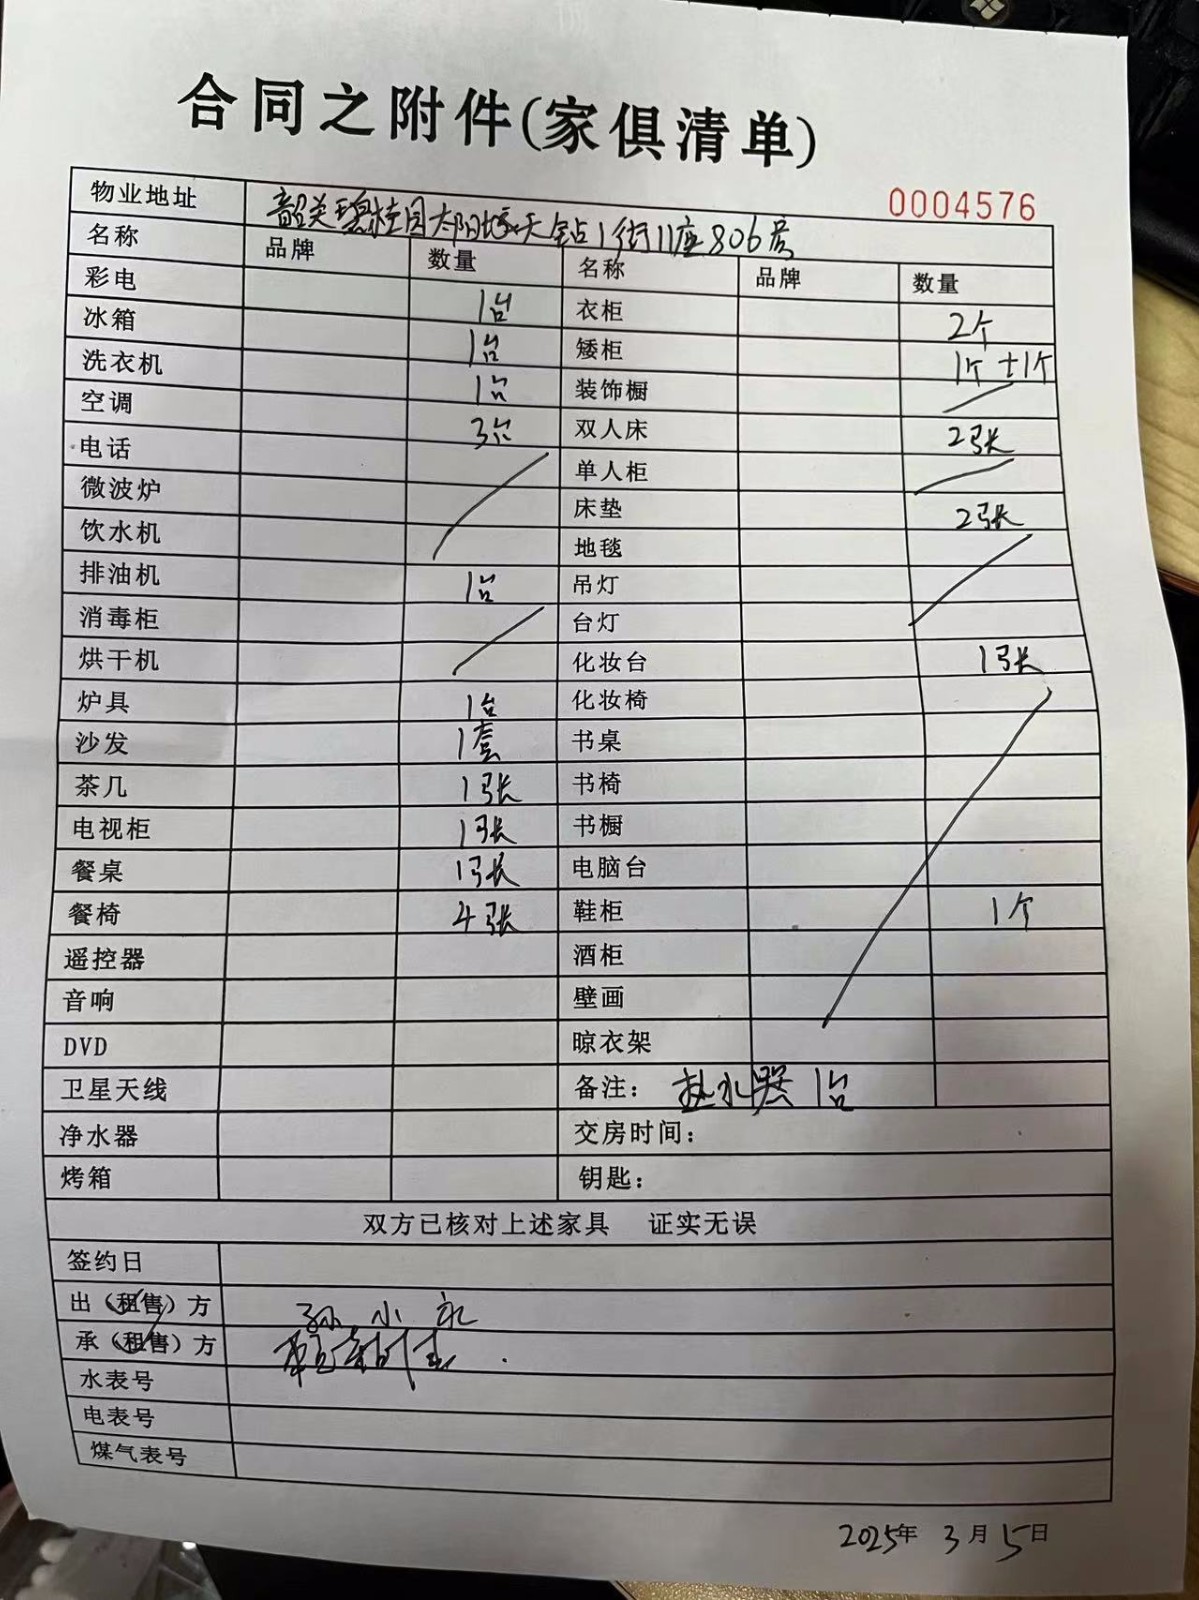 合同之附件(家俱清单)
0004576
物业地址 韶关碧桂园太阳城天钻1街11座806号
名称 品牌 数量 名称 品牌 数量
彩电 1台 衣柜 2个
冰箱 1台 矮柜 1个+1个
洗衣机 1台 装饰橱
空调 3台 双人床 2张
电话 单人柜
微波炉 床垫 2张
饮水机 地毯
排油机 1台 吊灯
消毒柜 台灯
烘干机 化妆台 1张
炉具 1台 化妆椅
沙发 1套 书桌
茶几 1张 书椅
电视柜 1张 书橱
餐桌 1张 电脑台
餐椅 4张 鞋柜 1个
遥控器 酒柜
音响 壁画
DVD 晾衣架
卫星天线 备注： 热水器 1台
净水器 交房时间：
烤箱 钥匙：
双方已核对上述家具 证实无误
签约日
出（租售）方 孙小礼
承（租售）方
水表号
电表号
煤气表号
2025年 3月5日